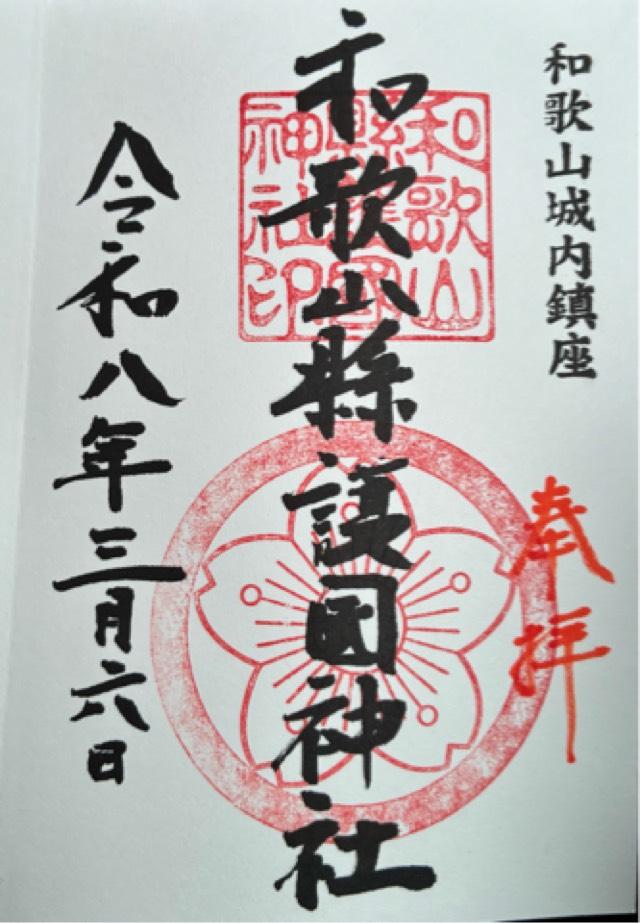 和歌山城内鎮座
奉拝
和歌山縣護國神社
和歌山
縣護國
神社印
令和八年三月六日